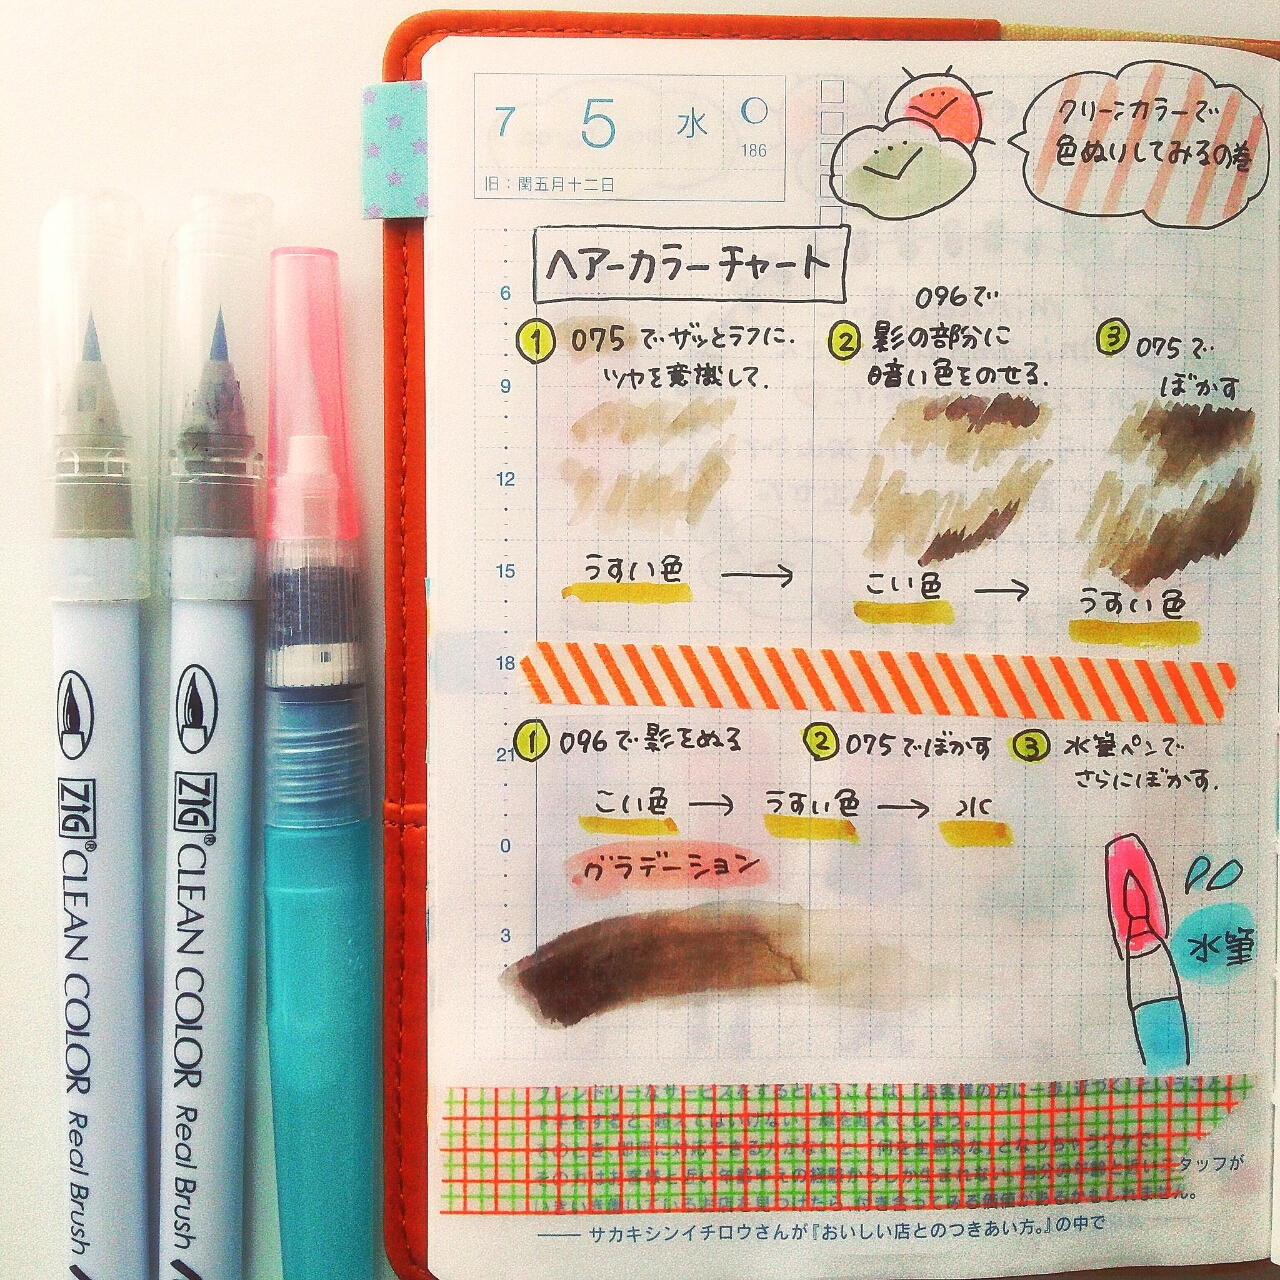 7 5 水
186
旧：閏五月十二日
クリーンカラーで
色ぬりしてみるの巻
ヘアーカラーチャート
① 075でザッとラフに.
ツヤを意識して.
096で
② 影の部分に
暗い色をのせる.
③ 075で
ぼかす
うすい色 → こい色 → うすい色
① 096で影をぬる
② 075でぼかす
③ 水筆ペンで
さらにぼかす.
こい色 → うすい色 → 水
グラデーション
水筆
6
9
12
15
18
21
0
3
タッフが
—— サカキシンイチロウさんが『おいしい店とのつきあい方。』の中で
ZIG® CLEAN COLOR Real Brush
ZIG® CLEAN COLOR Real Brush